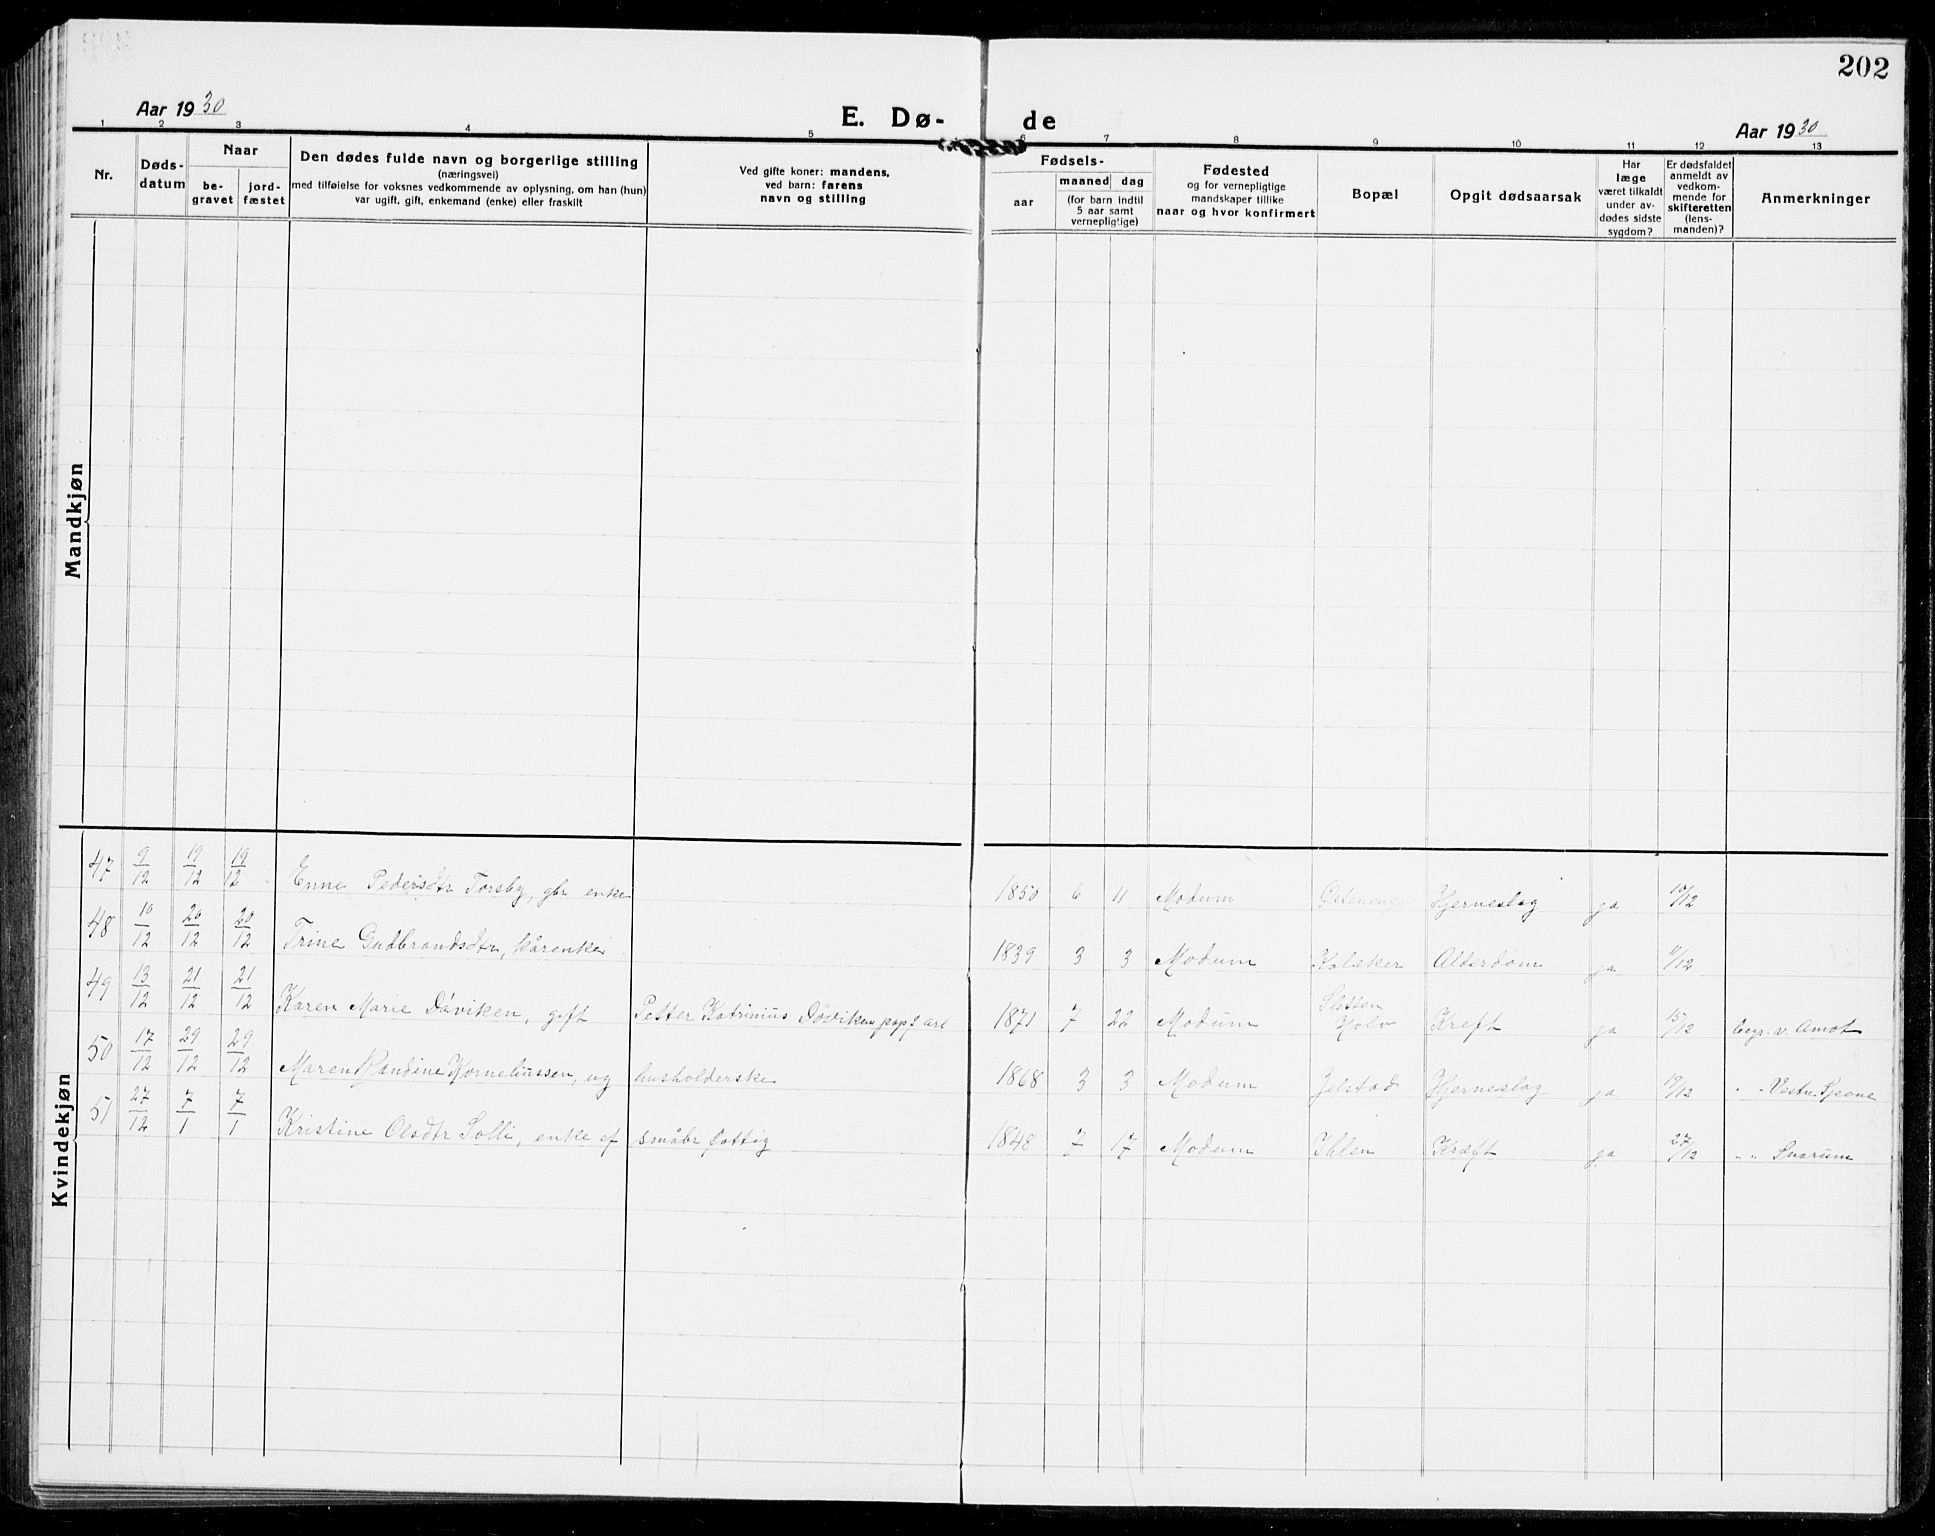 202
Aar 1930
E. Dø-
de
Aar 1930
1 2 3 4 5 6 7 8 9 10 11 12 13
Nr.
Døds-
datum
Naar
be-
gravet
jord-
fæstet
Den dødes fulde navn og borgerlige stilling
(næringsvei)
med tilføielse for voksnes vedkommende av oplysning, om han (hun)
var ugift, gift, enkemand (enke) eller fraskilt
Ved gifte koner: mandens,
ved barn: farens
navn og stilling
Fødsels-
aar
maaned dag
(for barn indtil
5 aar samt
vernepligtige)
Fødested
og for vernepligtige
mandskaper tillike
naar og hvor konfirmert
Bopæl
Opgit dødsaarsak
Har
læge
været tilkaldt
under av-
dødes sidste
sygdom?
Er dødsfaldet
anmeldt av
vedkom-
mende for
skifteretten
(lens-
manden)?
Anmerkninger
Mandkjøn
Kvindekjøn
47 9/12 19/12 19/12 Enne Pedersdtr Torsby, gbr enke 1850 6 11 Modum Hjerneslag ja 10/12
48 10/12 20/12 20/12 Trine Gudbrandsdtr, kårenke 1839 3 3 Modum Kolsker Alderdom ja 11/12
49 13/12 21/12 21/12 Karen Marie Døviken, gift Petter Katrinius Døviken pap f arb 1871 7 22 Modum Slotten Kolv Kreft ja 15/12 begr. v. Åmot
50 17/12 29/12 29/12 Maren Randine Korneliussen, ug husholderske 1868 3 3 Modum Jelstad Hjerneslag ja 19/12 " " Vestre Spone
51 27/12 7/1 7/1 Kristine Olsdtr Solli, enke ef småbr fattig 1848 7 17 Modum Ihlen Kræft ja 27/12 " " Snarum